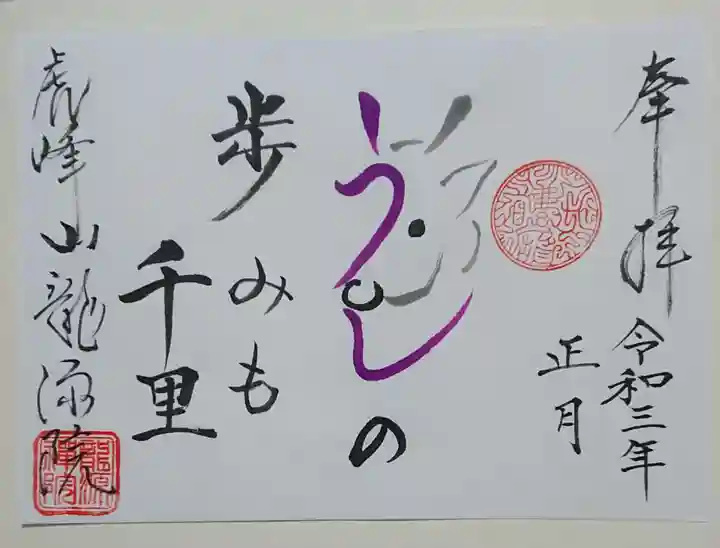 奉拝
令和三年
正月
うしの
歩みも
千里
虎峰山龍源院